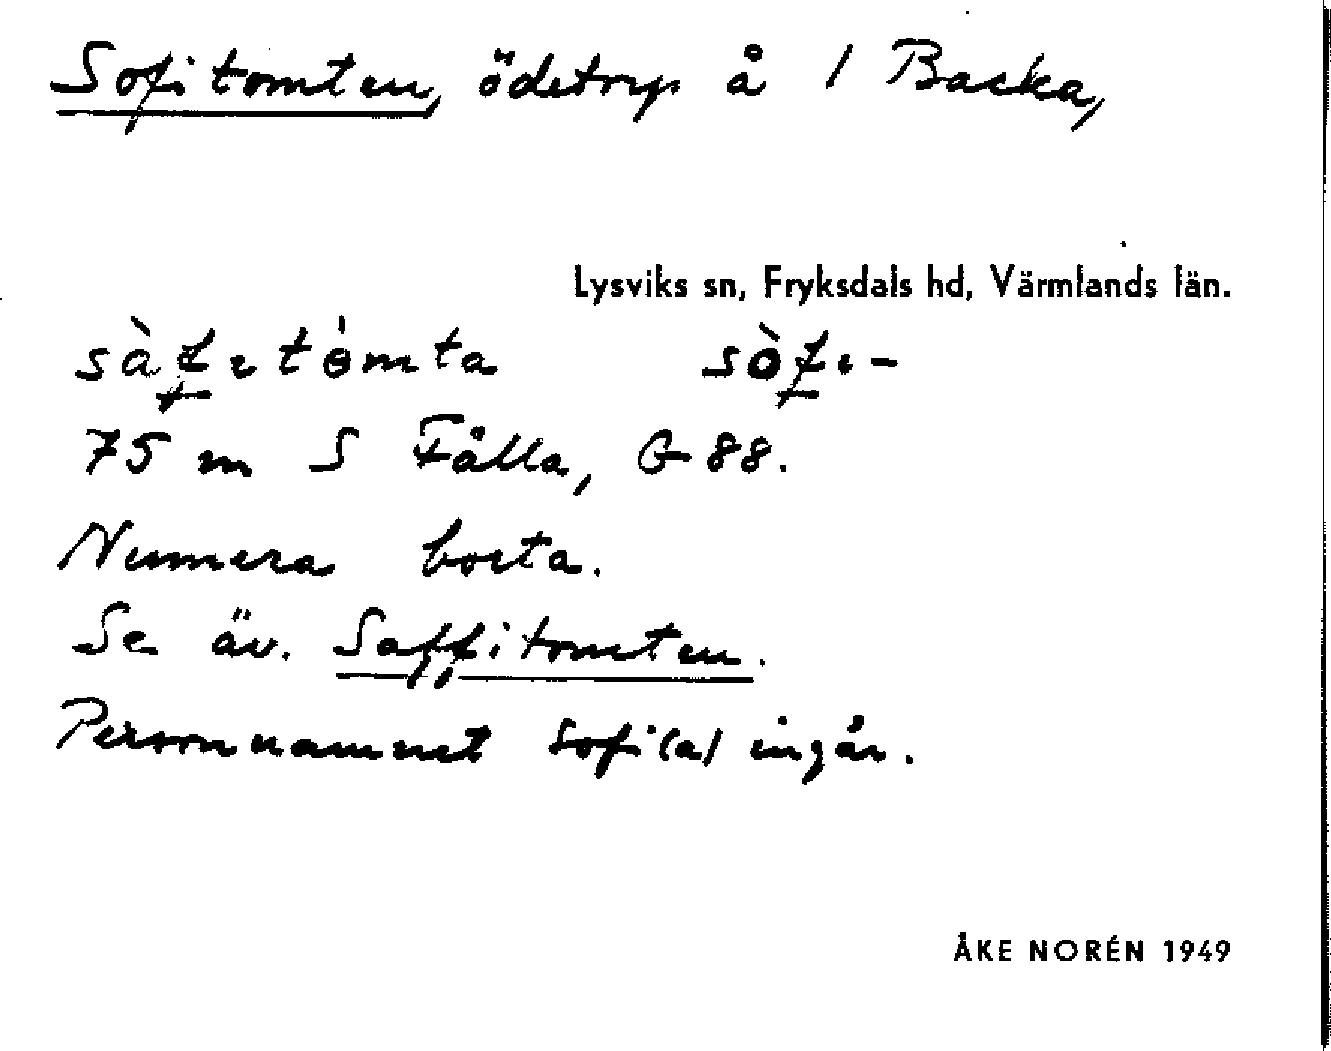 Sofitomten, ödetorp å 1 Backa,
Lysviks sn, Fryksdals hd, Värmlands län.
75 m S Fälla, G 88.
Numera borta.
Se äv. Saffitomten.
Personnamnet Sofi(a) ingår.
ÅKE NORÉN 1949